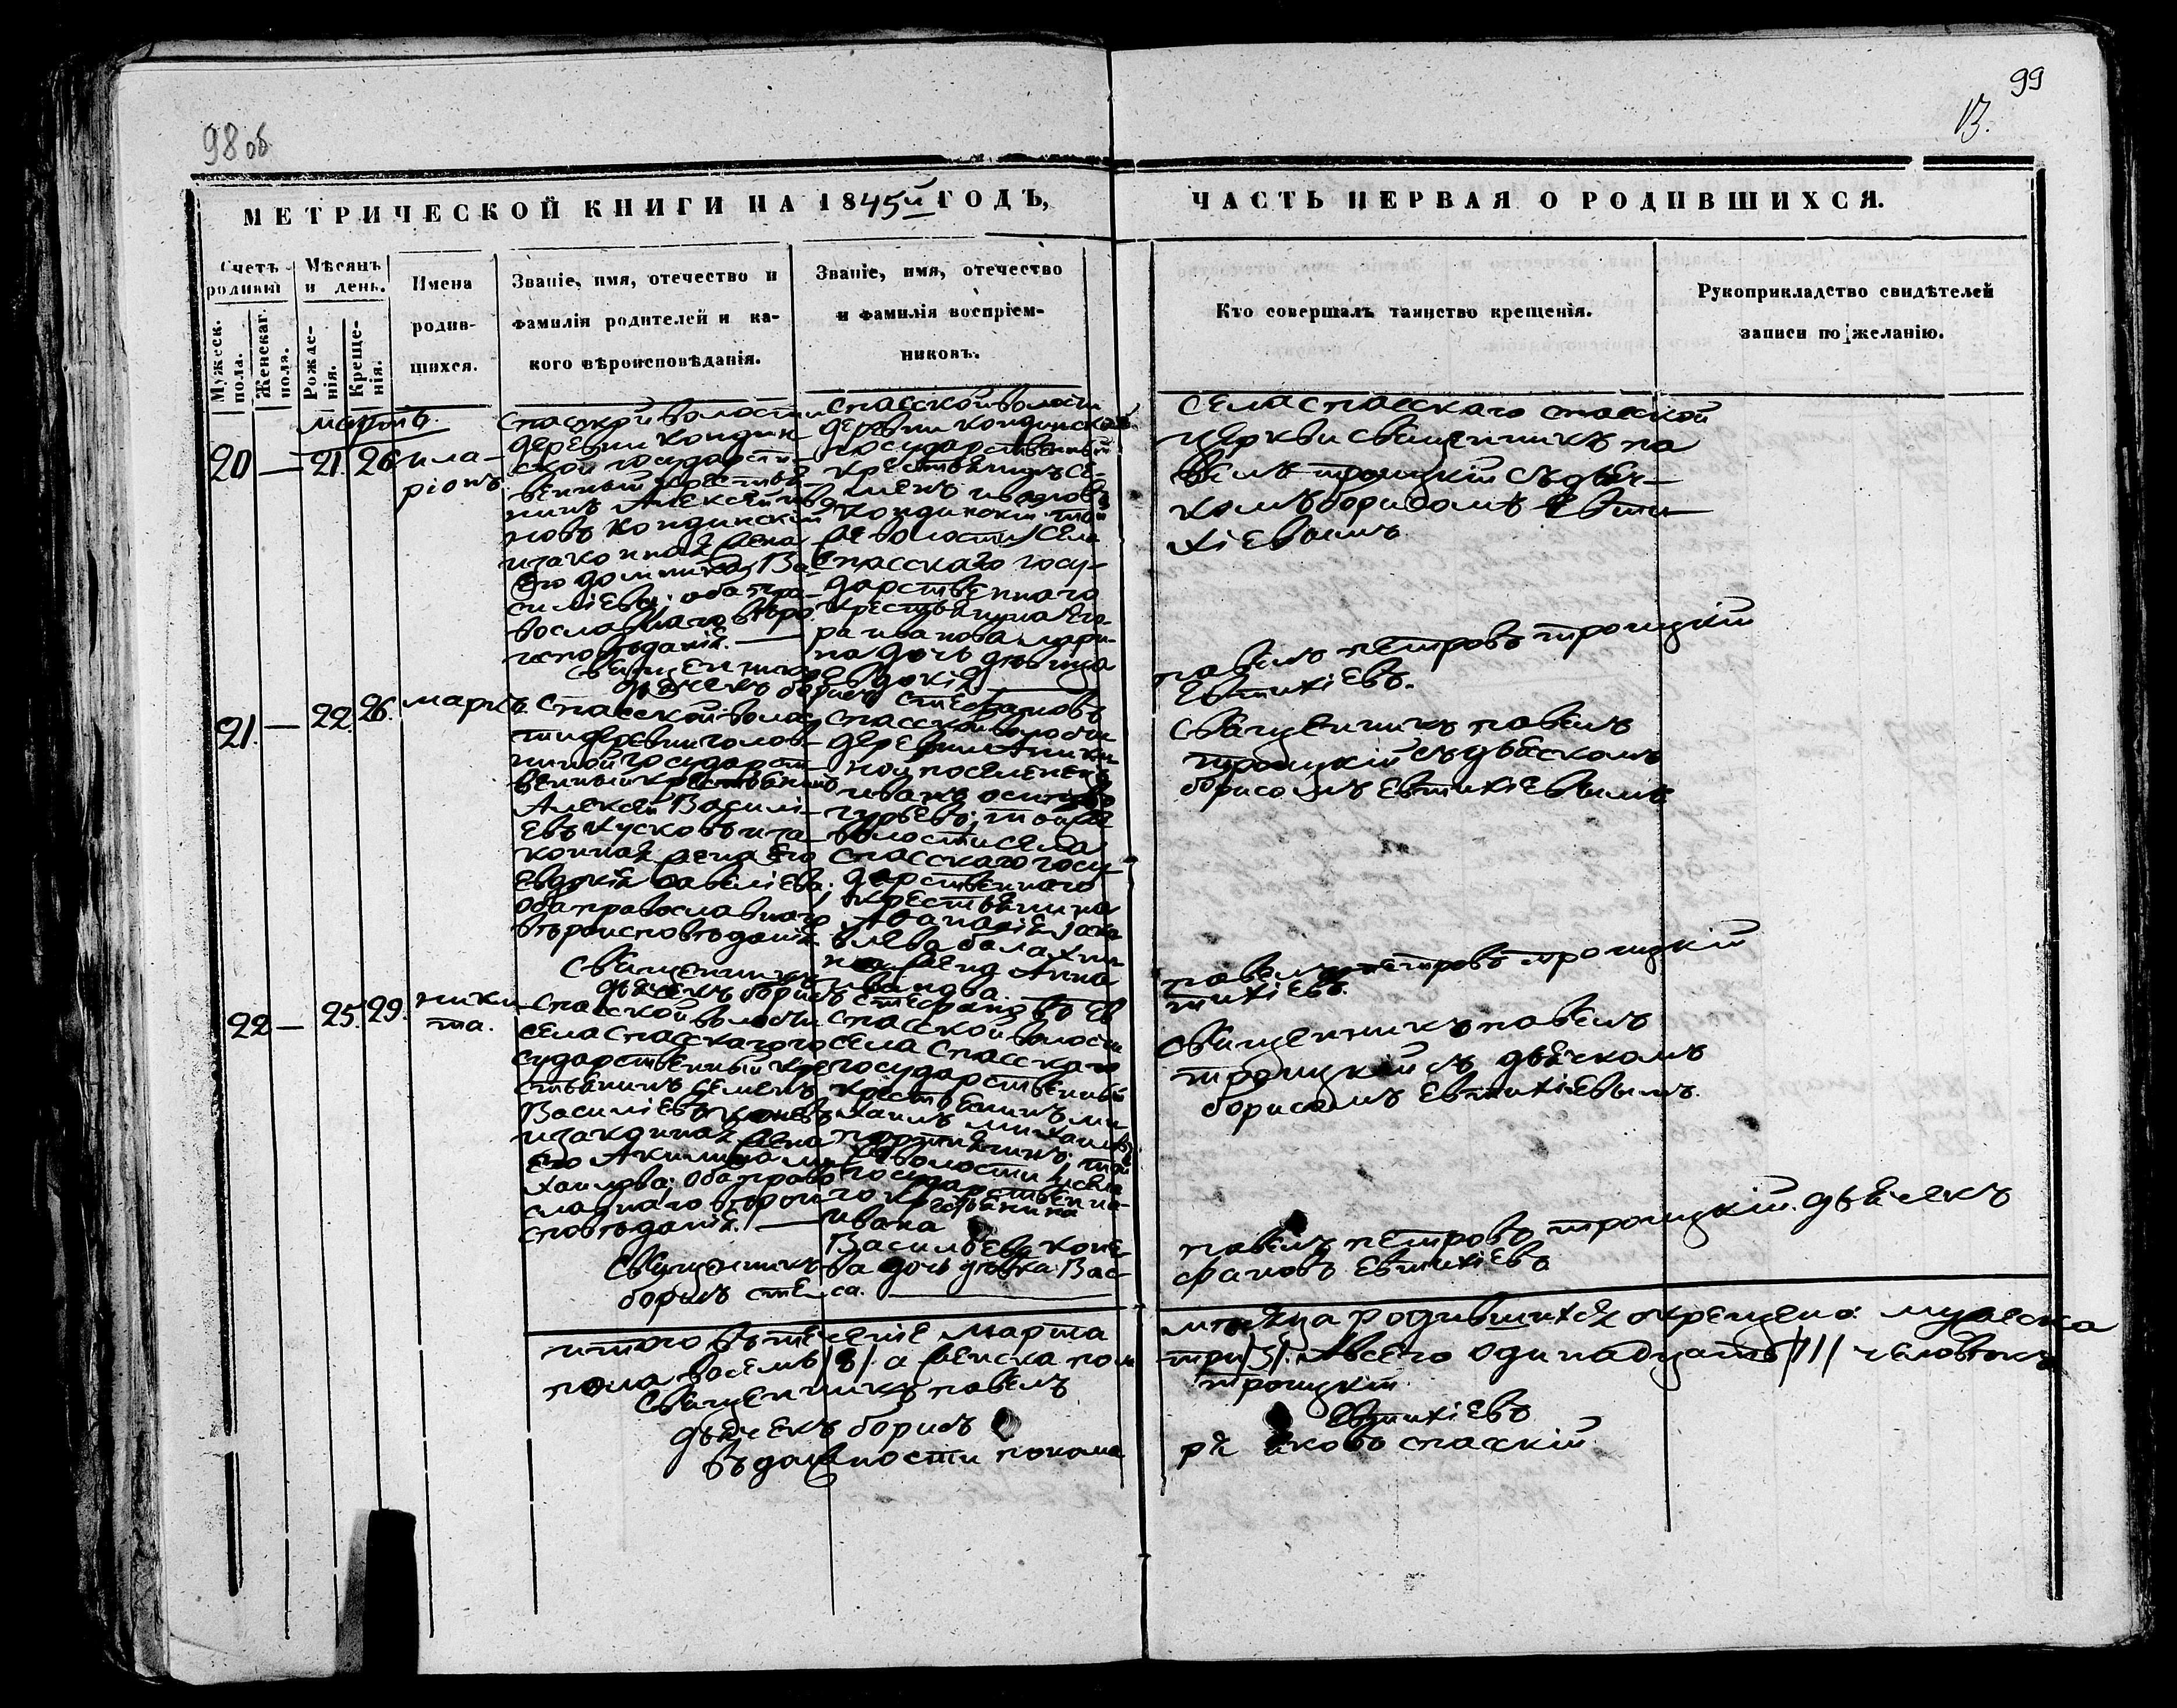 98 об
99
13.
МЕТРИЧЕСКОЙ КНИГИ НА 1845й ГОДЪ,
ЧАСТЬ ПЕРВАЯ О РОДИВШИХСЯ.
Счетъ родившихся
Мужеск. пола.
Женскаг. пола.
Мѣсяцъ и день.
Рожде-
нія.
Креще-
нія.
Имена
родив-
шихся.
Званіе, имя, отечество и
фамилія родителей и ка-
кого вѣроисповѣданія.
Званіе, имя, отечество
и фамилія воспріем-
никовъ.
Кто совершалъ таинство крещенія.
Рукоприкладство свидѣтелей
записи по желанію.
марта.
20 — 21. 26
ила-
ріонъ
спасской волости
деревни кондин-
ской государст-
венный крестья-
нинъ Алексей ива
новъ кондинскій
изаконная жена
его домника Ва-
силіева; оба пра-
вославнаго вѣро
исповѣданія. —
спасской волости
деревни кондинской
государственный
крестьянинъ Се-
менъ ивановъ
кондинскій той
же волости села
спасскаго госу-
дарственнаго
крестьянина Его-
ра иванова мари-
на дочь девица
евдокія
села спасскаго спасской
церкви священникъ па
велъ троицкій съ дьяч-
комъ борисомъ Евти-
хіевымъ
священникъ павелъ петровъ троицкій
дьячекъ борисъ стефановъ Евтихіевъ.
21. — 22. 26.
маркъ.
спасской воло
ти деревни голов-
ниной государст-
венный крестьянинъ
Алексей Василі-
евъ кусковъ иза-
конная жена его
евдокія савеліева;
оба православнаго
вѣроисповѣданія
спасской волости
деревни Аники-
ной поселенецъ
иванъ осиповъ
гурьевъ; той же
волости села
спасскаго госу-
дарственнаго
крестьянина
Афанасія яко
влева балахни-
на жена Анна
иванова.
Священникъ павелъ
троицкій съ дьячкомъ
борисомъ евтихіевымъ
священникъ павелъ петровъ троицкій
дьячекъ борисъ стефановъ ев
тихіевъ.
22 — 25. 29.
ники-
та.
спасской волости
села спасскаго го
сударственный кре
стьянинъ семенъ
Василіевъ коневъ
изаконная жена
его Акилина ми-
хаилова; оба право
славнаго вѣрои
сповѣданія. —
спасской волости
села спасскаго
государственный
крестьянинъ ми
хаилъ михаиловъ
портнягинъ; той
же волости и села
государственна-
го крестьянина
ивана
Васильева коне-
ва дочь девка Вас-
са.
Священникъ павелъ
троицкій съ дьячкомъ
борисомъ евтихіевымъ.
Священникъ павелъ петровъ троицкій. дьячекъ
борисъ сте фановъ евтихіевъ
итого въ теченіе марта мѣсяца родившихся окрещено: мужеска
пола восемь /8/. а женска пола три /3/. Авсего одинадцать /11/ человекъ
Священникъ павелъ троицкій
дьячекъ борисъ евтихіевъ
въ должности понома ря яковъ спасскій